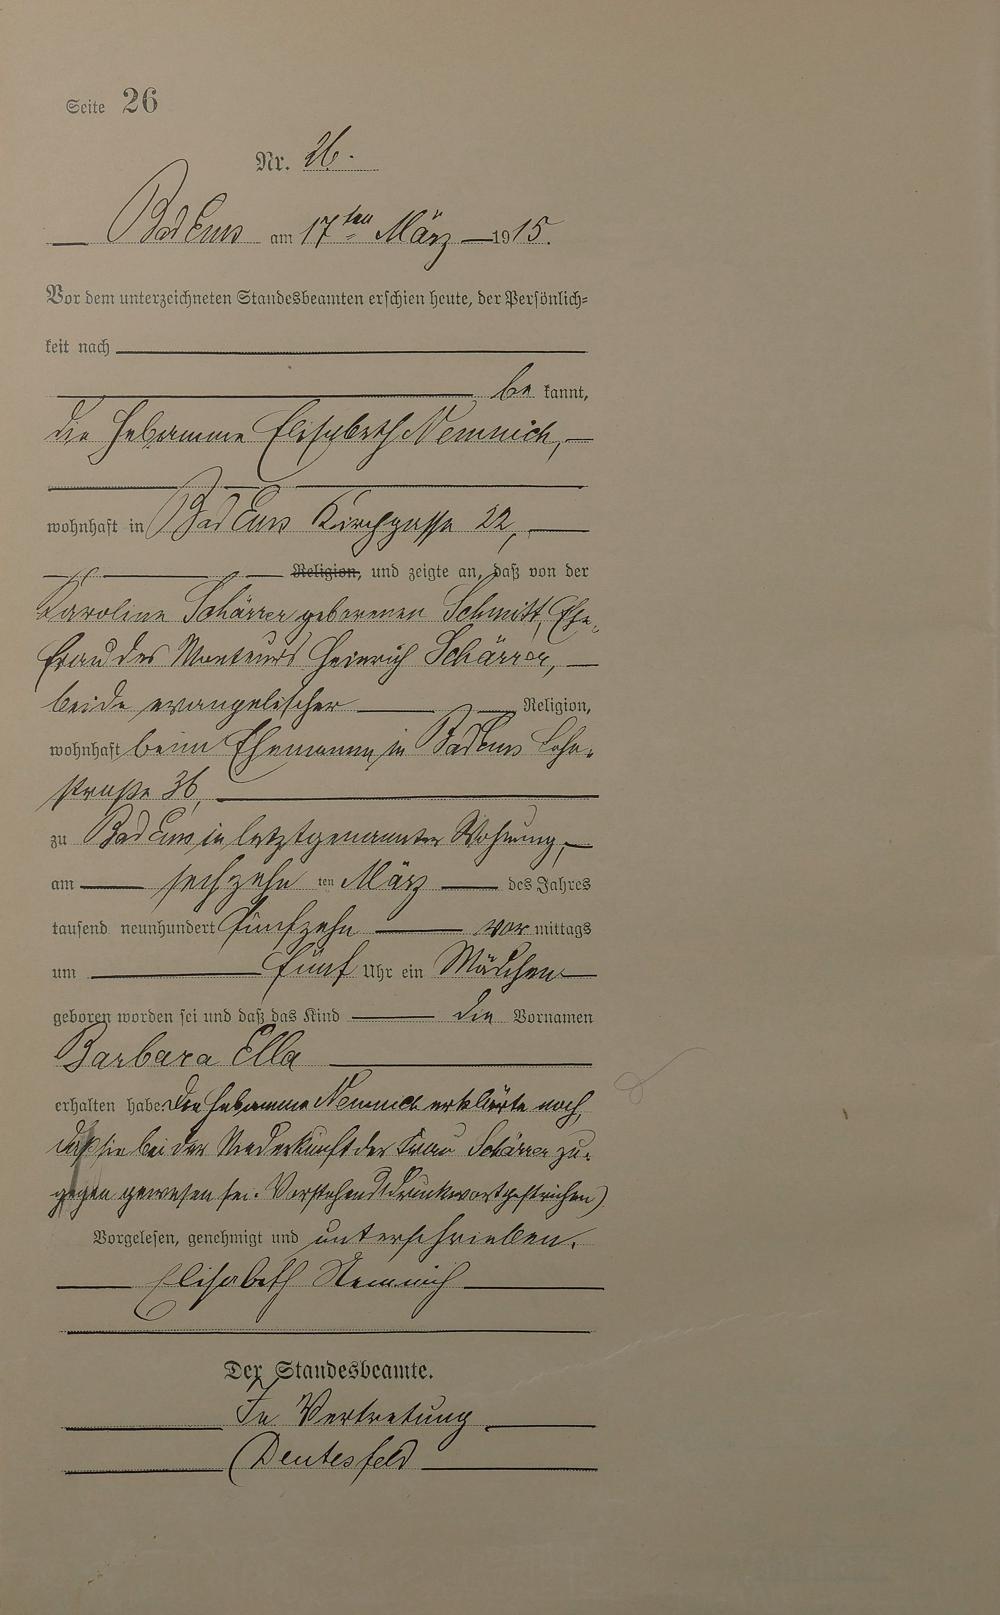 Seite 26
Nr. 26.
Bad Ems am 17ten März 1915.
Vor dem unterzeichneten Standesbeamten erschien heute, der Persönlich-
keit nach
be kannt,
die Hebamme Elisabeth Nemnich,
wohnhaft in Bad Ems Kirchgasse 22,
Religion, und zeigte an, daß von der
Karoline Schärrer geborenen Schmitt, Ehe-
frau des Monteurs Heinrich Schärrer,
beide evangelischer Religion,
wohnhaft beim Ehemann in Bad Ems Lahn-
straße 36,
zu Bad Ems in letztgenannter Wohnung,
am sechzehn ten März des Jahres
tausend neunhundert fünfzehn vor mittags
um fünf Uhr ein Mädchen
geboren worden sei und daß das Kind die Vornamen
Barbara Ella
erhalten habe. Die Hebamme Nemnich erklärte noch,
daß sie bei der Niederkunft der Frau Schärrer zu-
gegen gewesen sei. (Vorstehend 1 Druckwort gestrichen)
Vorgelesen, genehmigt und unterschrieben.
Elisabeth Nemnich
Der Standesbeamte.
In Vertretung
Deutesfeld